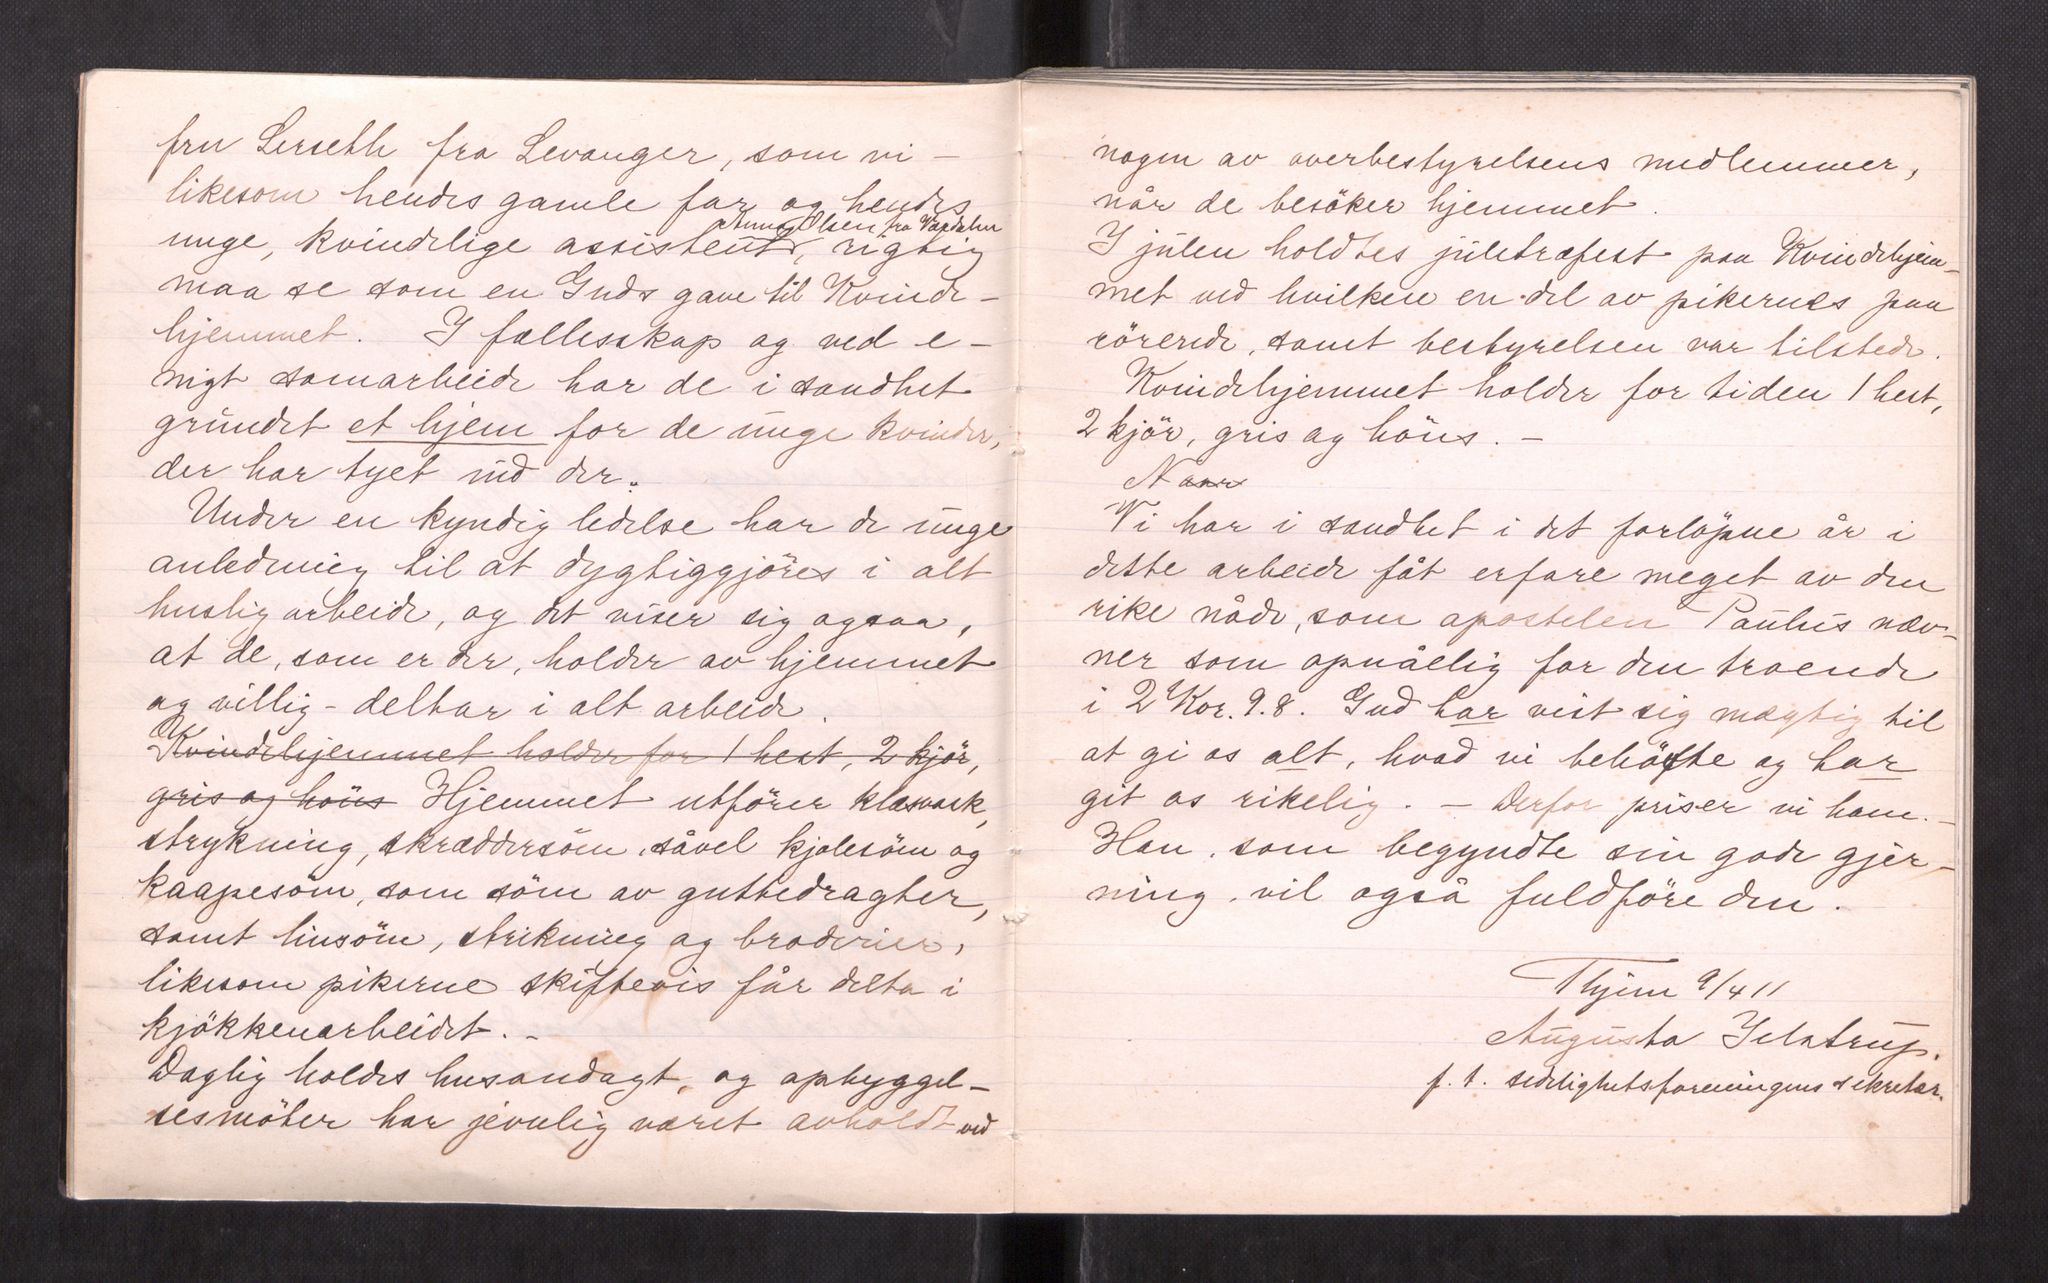 fru Lerseth fra Levanger, som vi –
likesom hendes gamle far og hendes
Anna Olsen fra Værdalen
unge, kvindelige assistent, rigtig
maa se som en Guds gave til Kvinde-
hjemmet. I fællesskap og ved e-
nigt samarbeide har de i sandhet
grundet et hjem for de unge kvinder,
der har tyet ind der.
Under en kyndig ledelse har de unge
anledning til at dygtiggjöres i alt
huslig arbeide, og det viser sig ogsaa,
at de, som er der, holder av hjemmet
og villig - deltar i alt arbeide.
Kvindehjemmet holder for 1 hest, 2 kjör,
gris og höns Hjemmet utförer klæsvask,
strykning, skræddersöm, såvel kjolesöm og
kaapesöm, som söm av guttedragter,
samt linsöm, strikning og broderier,
likesom pikerne skiftevis får delta i
kjökkenarbeidet. –
Daglig holdes husandagt, og opbyggel-
sesmöter har jevnlig været avholdt ved
nogen av overbestyrelsens medlemmer,
når de besöker hjemmet.
I julen holdtes juletræfest paa Kvindehjem-
met ved hvilken en del av pikernes paa
rörende, samt bestyrelsen var tilstede.
Kvindehjemmet holder for tiden 1 hest,
2 kjör, gris og höns. –
Naar
Vi har i sandhet i det forlöpne år i
dette arbeide fåt erfare meget av den
rike nåde, som apostelen Paulus næv-
ner som opnåelig for den troende
i 2 Kor. 9.8. Gud har vist sig mægtig til
at gi os alt, hvad vi behöfte og har
git os rikelig. – Derfor priser vi ham. –
Han, som begyndte sin gode gjer-
ning, vil også fuldföre den.
Thjem 9/4 11
Augusta Jelstrup.
f. t. sedelighetsforeningens sekretær.